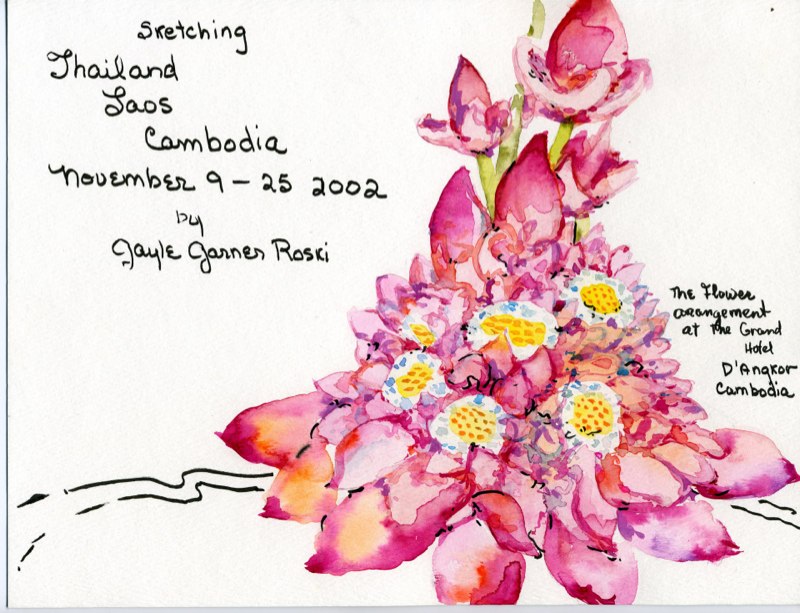 Sketching
Thailand
Laos
Cambodia
November 9 - 25 2002
by
Gayle Garner Roski
The Flower
arangement
at The Grand
Hotel
D'Angkor
Cambodia